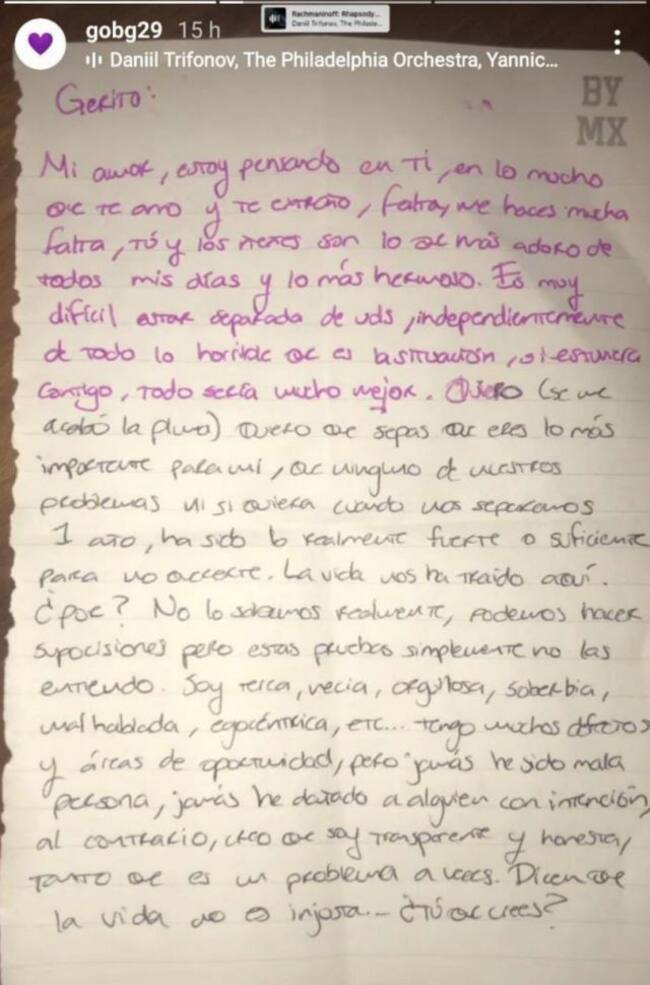 Rachmaninoff: Rhapsody...
Daniil Trifonov, The Philade...
gobg29 15 h
Daniil Trifonov, The Philadelphia Orchestra, Yannic...
BY
MX
Gerito:
Mi amor, estoy pensando en ti, en lo mucho
qe te amo y te extraño, falta, me haces mucha
falta, tú y los nenes son lo qe más adoro de
todos mis días y lo más hermoso. Es muy
difícil estar separada de uds, independientemente
de todo lo horrible qe es la situación, si estuviera
contigo, todo sería mucho mejor. Quiero (se me
acabó la pluma) Quiero qe sepas qe eres lo más
importante para mí, qe ninguno de nuestros
problemas ni si quiera cuando nos separamos
1 año, ha sido lo realmente fuerte o suficiente
para no quererte. La vida nos ha traido aquí.
¿poe? No lo sabemos realmente, podemos hacer
supocisiones pero estas pruebas simplemente no las
entiendo. Soy terca, necia, orgullosa, soberbia,
mal hablada, egocéntrica, etc... tengo muchos defectos
y áreas de oportunidad, pero jamás he sido mala
persona, jamás he dañado a alguien con intención,
al contrario, creo qe soy transparente y honesta,
tanto qe es un problema a veces. Dicen qe
la vida no es injusta... ¿Tú qe crees?